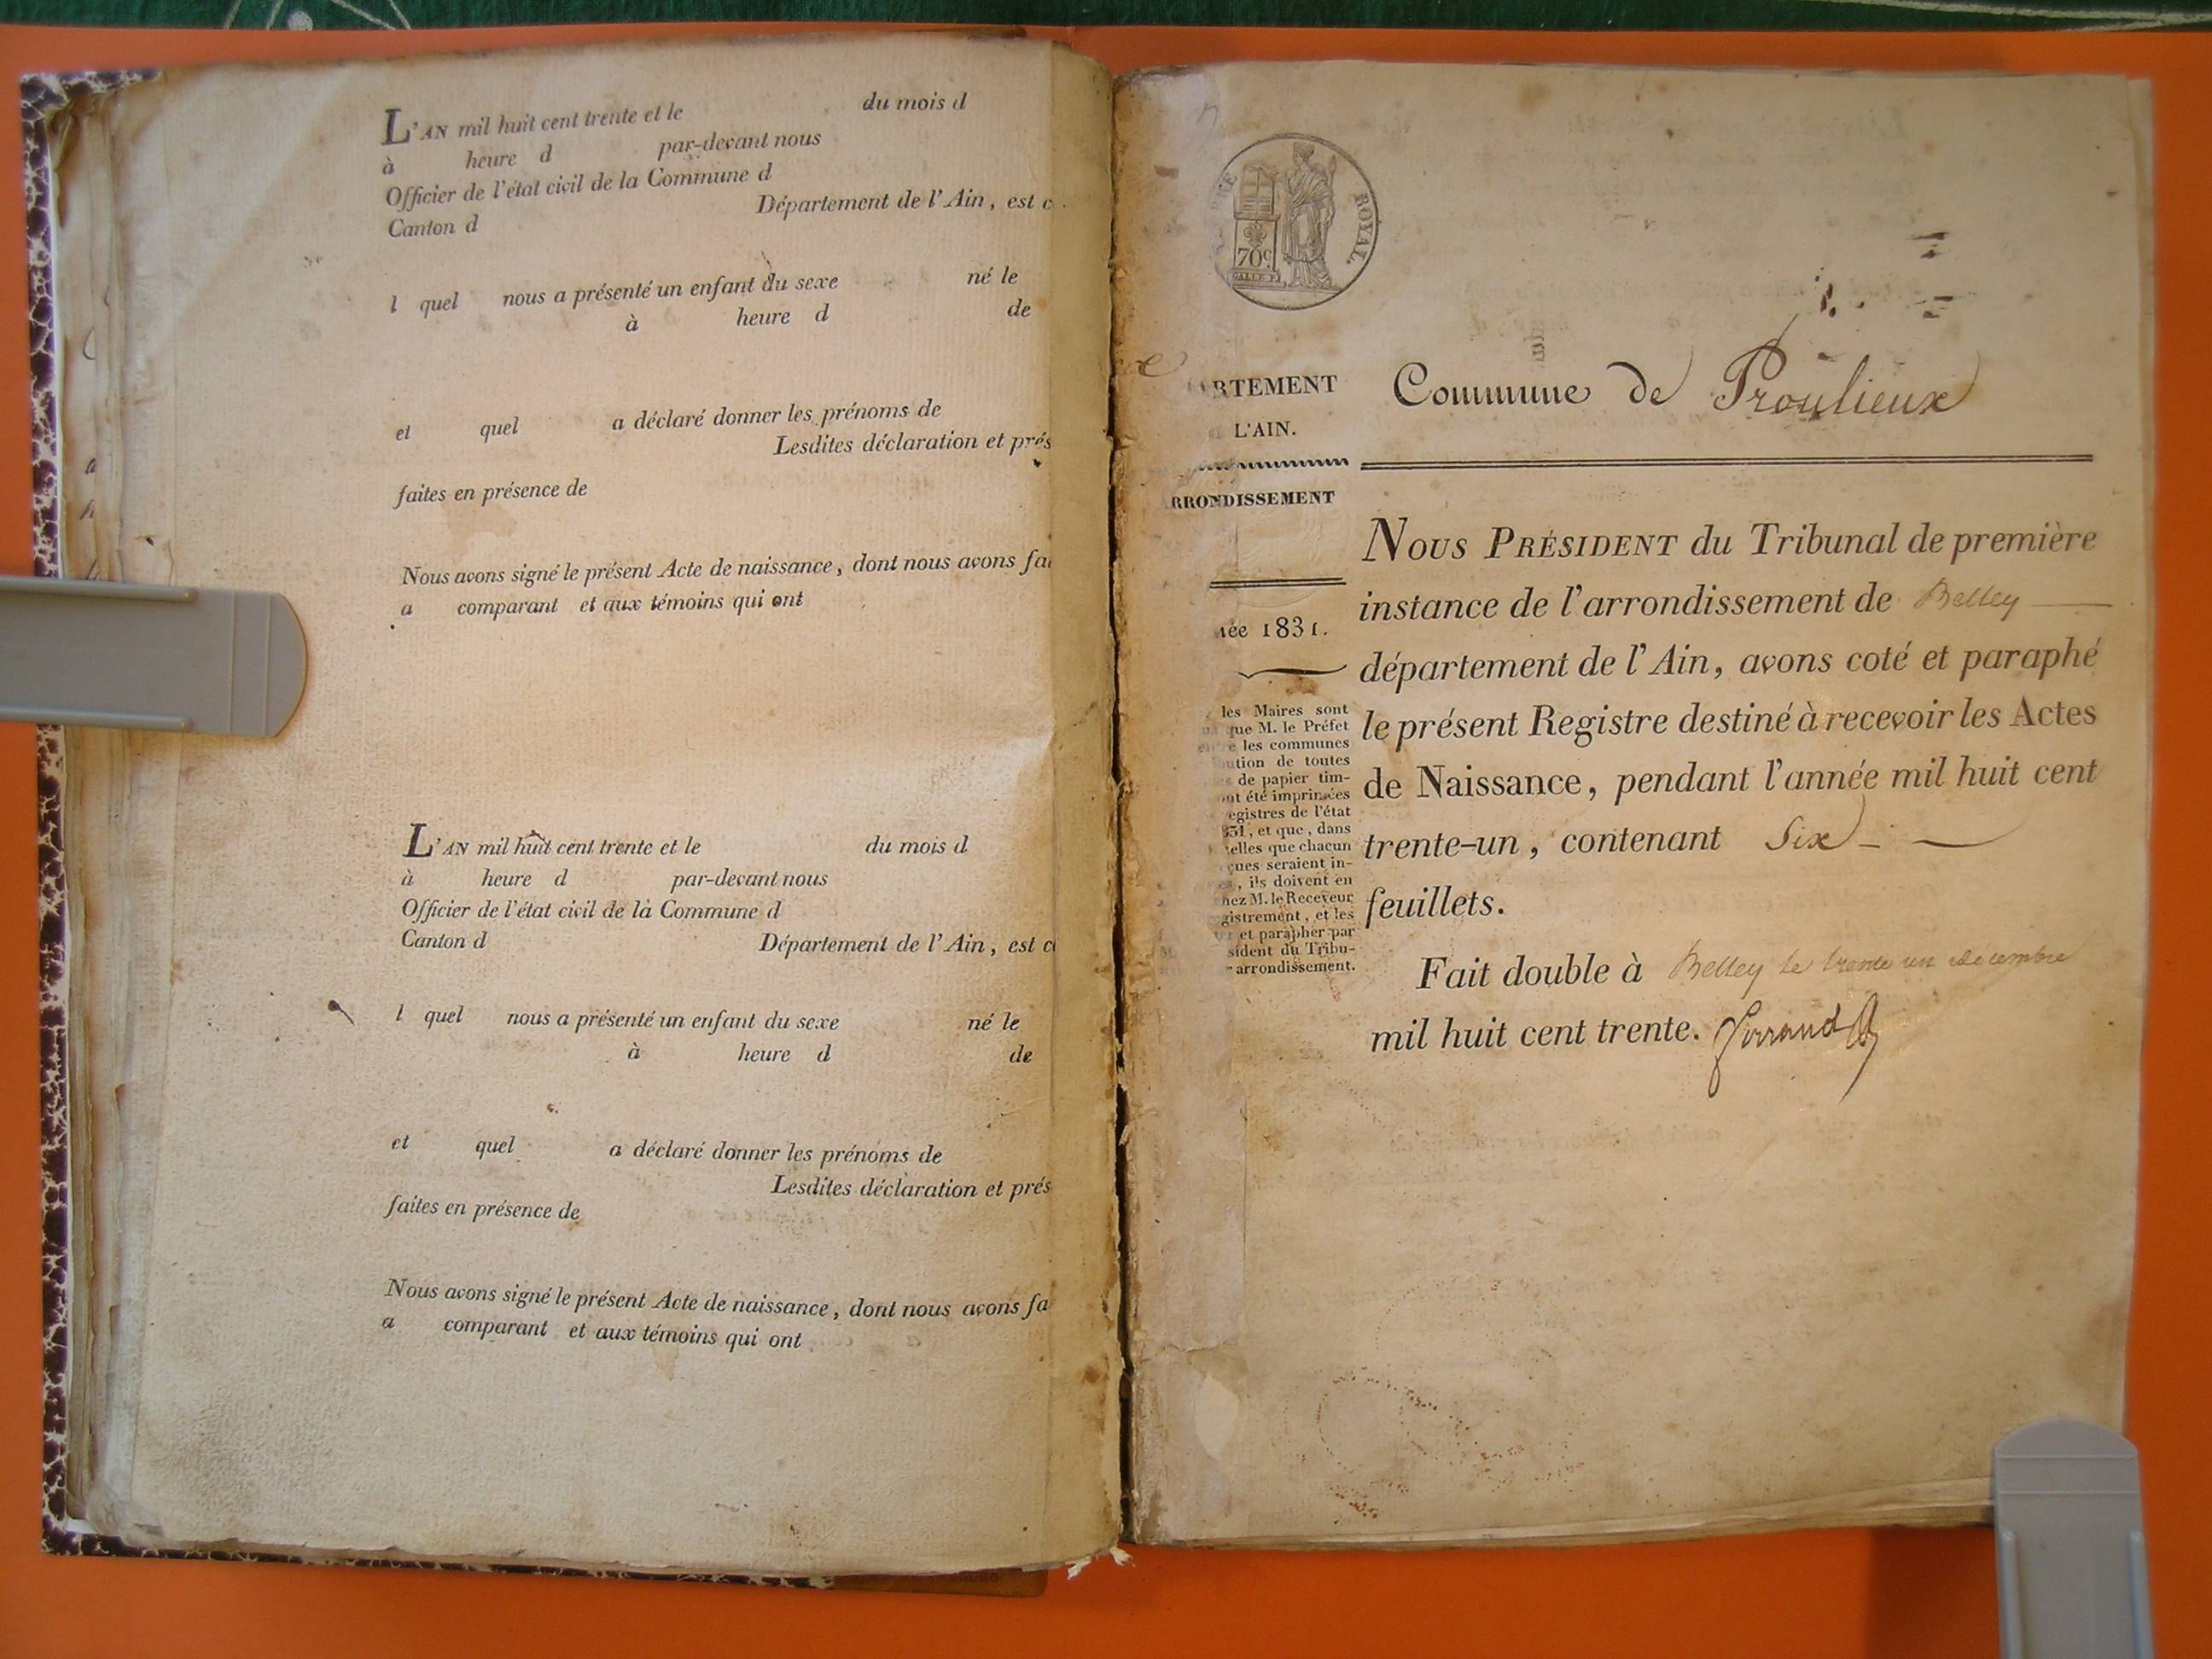 L'AN mil huit cent trente et le du mois d
à heure d par-devant nous
Officier de l'état civil de la Commune d
Canton d Département de l'Ain, est c
l quel nous a présenté un enfant du sexe né le
à heure d de
et quel a déclaré donner les prénoms de
Lesdites déclaration et prés
faites en présence de
Nous avons signé le présent Acte de naissance, dont nous avons fai
a comparant et aux témoins qui ont
L'AN mil huit cent trente et le du mois d
à heure d par-devant nous
Officier de l'état civil de la Commune d
Canton d Département de l'Ain, est c
l quel nous a présenté un enfant du sexe né le
à heure d de
et quel a déclaré donner les prénoms de
Lesdites déclaration et prés
faites en présence de
Nous avons signé le présent Acte de naissance, dont nous avons fa
a comparant et aux témoins qui ont
ROYAL
70c
RTEMENT
L'AIN.
RRONDISSEMENT
née 1831.
les Maires sont
que M. le Préfet
les communes
ution de toutes
de papier tim-
ont été imprimées
egistres de l'état
831, et que, dans
elles que chacun
ques seraient in-
, ils doivent en
hez M. le Receveur
gistrement, et les
et parapher par
sident du Tribu-
arrondissement.
Commune de Proulieux
NOUS PRÉSIDENT du Tribunal de première
instance de l'arrondissement de Belley
département de l'Ain, avons coté et paraphé
le présent Registre destiné à recevoir les Actes
de Naissance, pendant l'année mil huit cent
trente-un, contenant Six
feuillets.
Fait double à Belley le trente un décembre
mil huit cent trente.